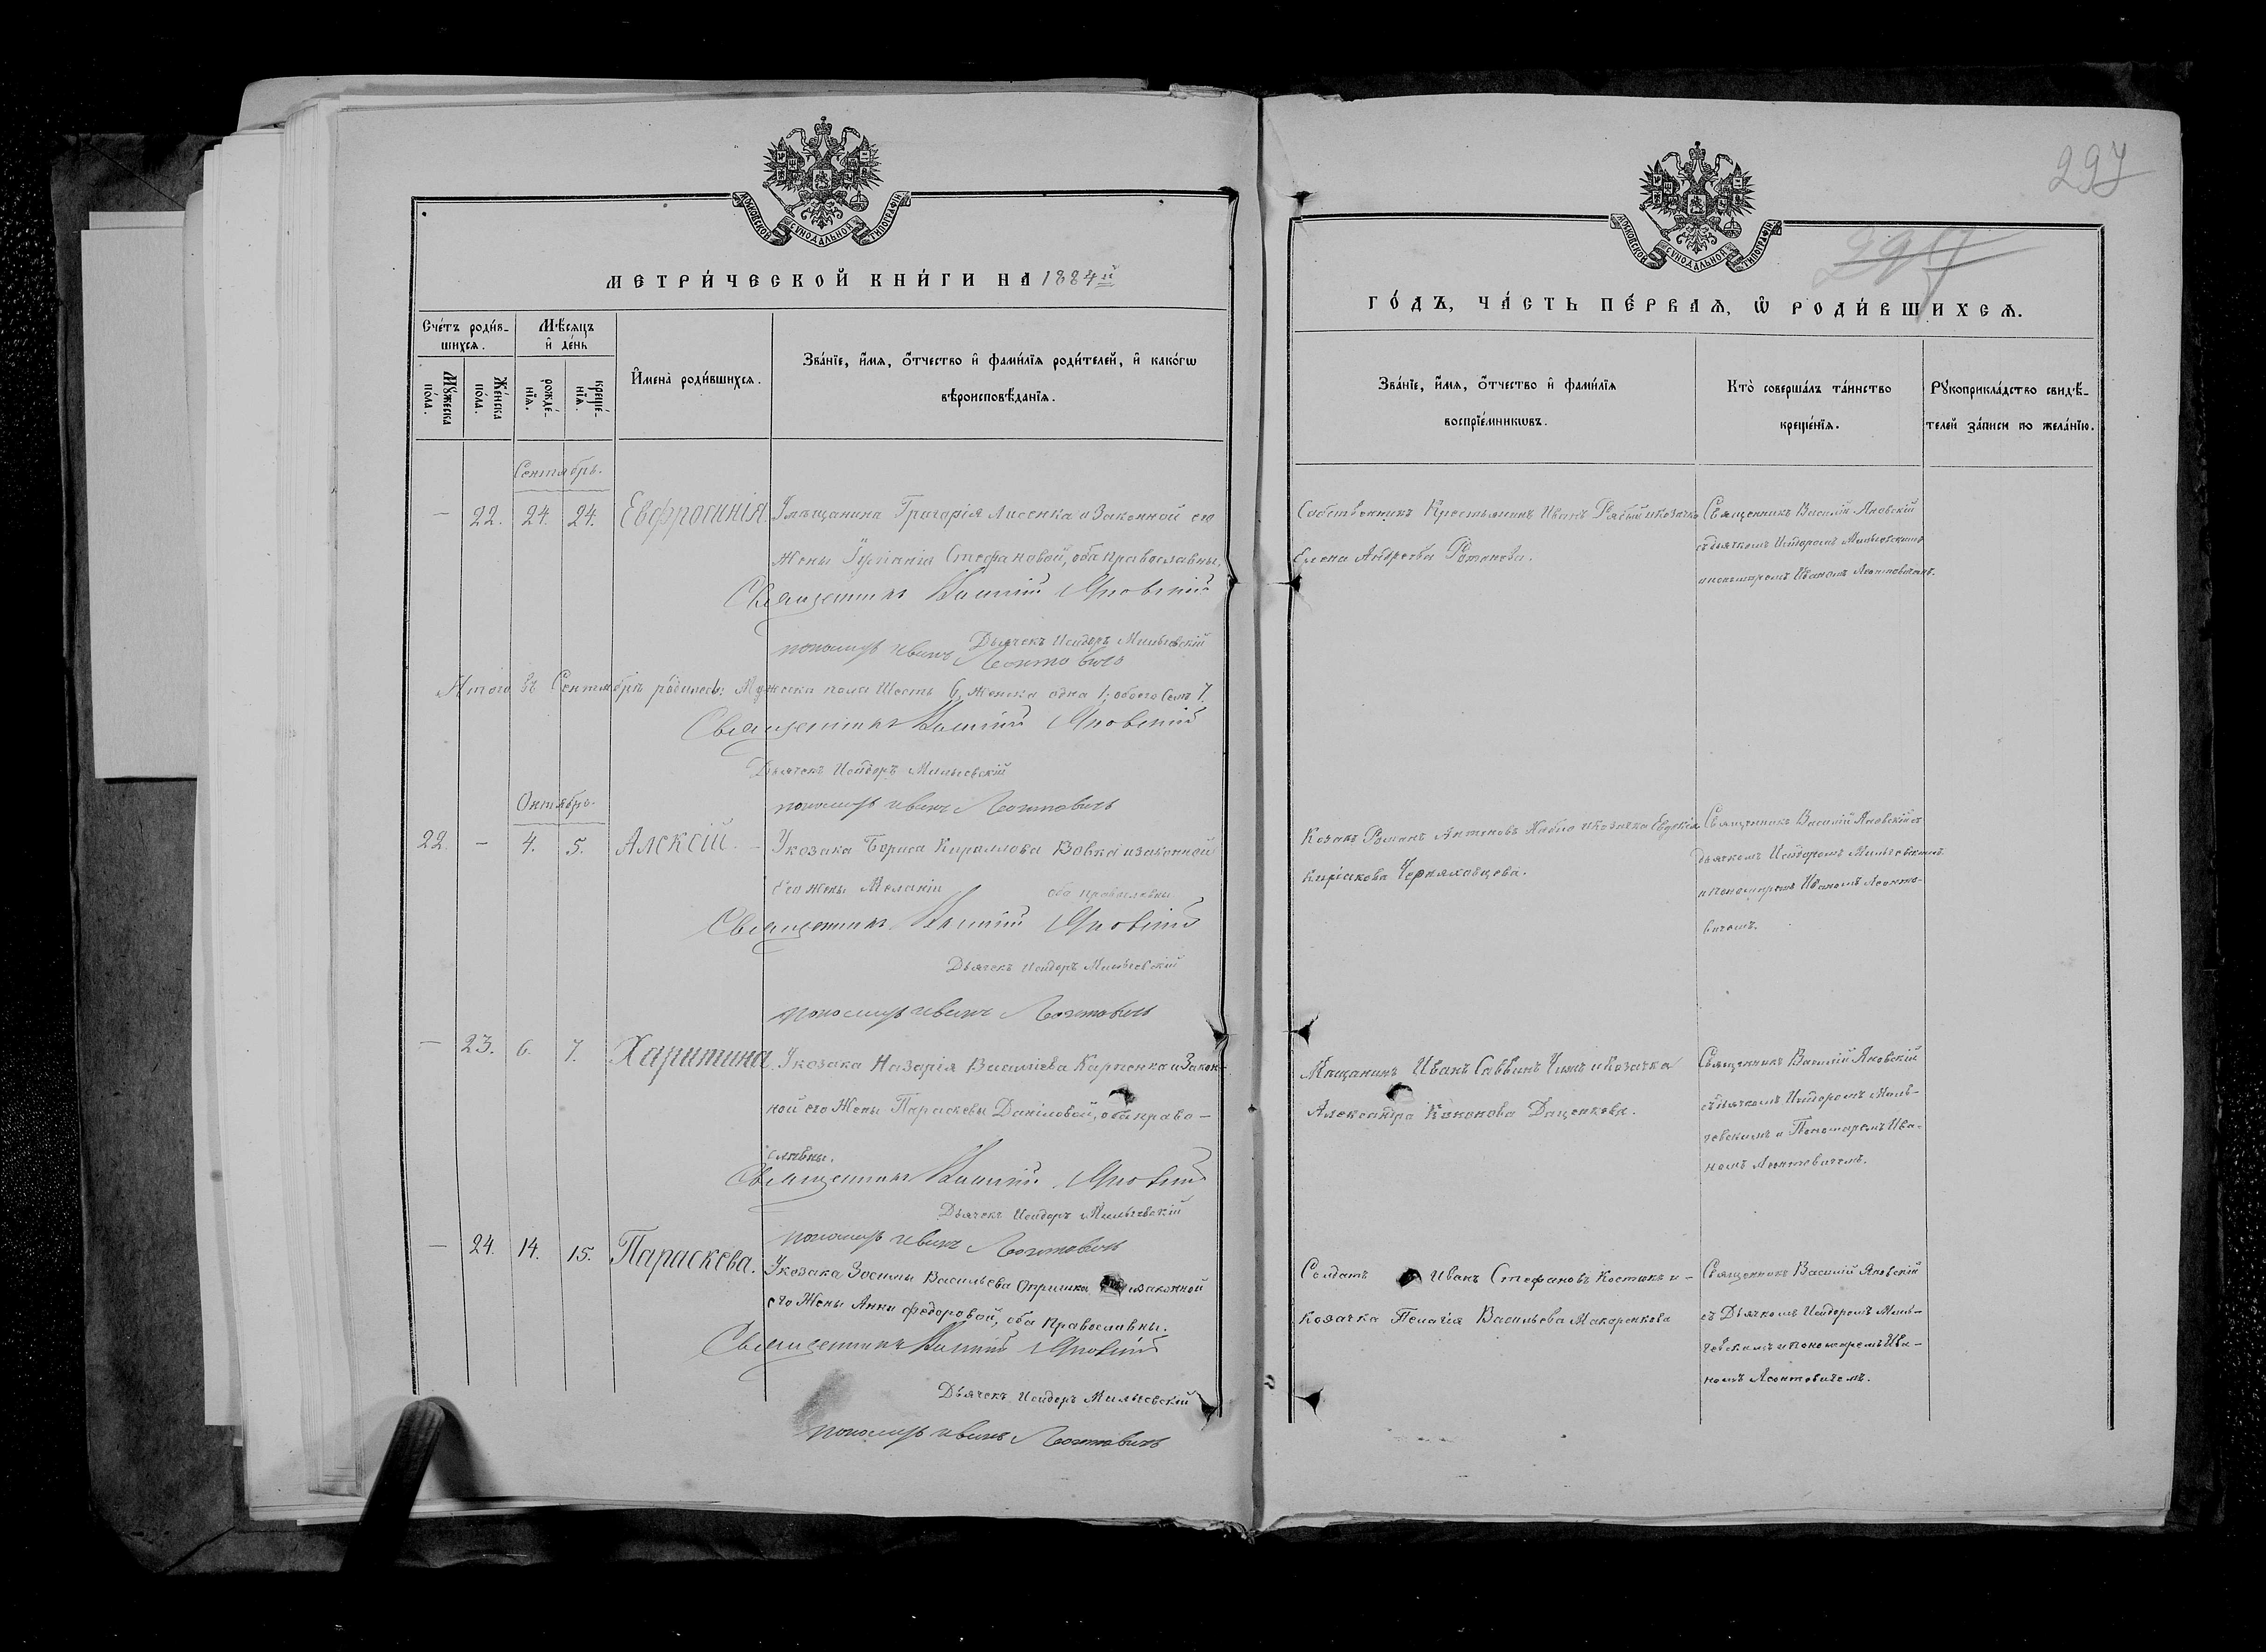 МОСКОВСКОЙ СѴНОДАЛЬНОЙ ТИПОГРАФІИ
МЕТРИ́ЧЕСКОЙ КНИ́ГИ НА 1884й
Сче́тъ роди́в-
шихсѧ.
Мѣ́сѧцъ
и҆ де́нь
Мꙋ́жеска
по́ла.
Же́нска
по́ла.
рожде́-
нїѧ.
креще́-
нїѧ.
И҆мена̀ роди́вшихсѧ.
Зва́нїе, и҆́мѧ, ѻ҆́тчество и҆ фами́лїѧ роди́телей, и҆ како́гѡ
вѣроисповѣ́данїѧ.
Сентябрь.
— 22. 24. 24. Евфросинія. У мѣщанина Григорія Лисенка и Законной его
жены Іуліаніи Стефановой, оба православны.
Священникъ Василій Яновскій
Дьячекъ Исидоръ Мильгевскій
пономарь Иванъ Леонтовичъ
Итого въ Сентябрѣ родилось: Мужеска пола Шесть 6, женска одна 1; обоего Семь 7.
Священникъ Василій Яновскій
Дьячекъ Исидоръ Мильгевскій
пономарь Иванъ Леонтовичъ
Октябрь.
22. — 4. 5. Алексій. У козака Бориса Кириллова Вовка и законной
его жены Меланіи оба православны
Священникъ Василій Яновскій
Дьячекъ Исидоръ Мильгевскій
пономарь Иванъ Леонтовичъ
— 23. 6. 7. Харитина У козака Назарія Василіева Карпенка и Закон-
ной его Жены Параскевы Даніиловой, оба право-
славны.
Священникъ Василій Яновскій
Дьячекъ Исидоръ Мильгевскій
пономарь Иванъ Леонтовичъ
— 24. 14. 15. Параскева. У козака Зосимы Васильева Опришка и законной
его Жены Анны Федоровой, оба Православны.
Священникъ Василій Яновскій
Дьячекъ Исидоръ Мильгевскій
пономарь Иванъ Леонтовичъ
297
297
МОСКОВСКОЙ СѴНОДАЛЬНОЙ ТИПОГРАФІИ
ГО́ДЪ, ЧА́СТЬ ПЕ́РВАѦ, Ѿ РОДИ́ВШИХСѦ.
Зва́нїе, и҆́мѧ, ѻ҆́тчество и҆ фами́лїѧ
воспрїе́мникѡвъ.
Кто̀ соверша́лъ та́инство
креще́нїѧ.
Рꙋкоприкла́дство свидѣ́-
телей за́писи по жела́нїю.
Собственникъ Крестьянинъ Иванъ Рябый и козачка
Елена Андреева
Священникъ Василій Яновскій
съ дьячкомъ Исидоромъ Мильгевскимъ
и пономаремъ Иваномъ Леонтовичемъ.
Козакъ Романъ Антоновъ и Козачка Евдокія
Киріакова Черняховцева.
Священникъ Василій Яновскій съ
дьячкомъ Исидоромъ Мильгевскимъ
и пономаремъ Иваномъ Леонто-
вичемъ.
Мѣщанинъ Иванъ Саввинъ и Козачка
Александра Кононова Даценкова.
Священникъ Василій Яновскій
съ дьячкомъ Исидоромъ Миль-
гевскимъ и Пономаремъ Ива-
номъ Леонтовичемъ.
Солдатъ Иванъ Стефановъ Костюкъ и -
козачка Пелагія Васильева Макаренкова
Священникъ Василій Яновскій
съ Дьячкомъ Исидоромъ Миль-
гевскимъ и пономаремъ Ива-
номъ Леонтовичемъ.